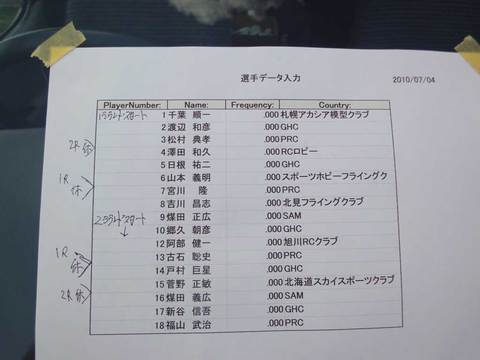 選手データ入力
2010/07/04
PlayerNumber: Name: Frequency: Country:
1 千葉 順一 .000 札幌アカシア模型クラブ
2 渡辺 和彦 .000 GHC
3 松村 典孝 .000 PRC
4 澤田 和久 .000 RCロビー
5 日根 祐二 .000 GHC
6 山本 義明 .000 スポーツホビーフライングク
7 宮川 隆 .000 PRC
8 吉川 昌志 .000 北見フライングクラブ
9 煤田 正広 .000 SAM
10 郷久 朝彦 .000 GHC
12 阿部 健一 .000 旭川RCクラブ
13 古石 聡史 .000 PRC
14 戸村 巨星 .000 GHC
15 菅野 正敏 .000 北海道スカイスポーツクラブ
16 煤田 義広 .000 SAM
17 新谷 信吾 .000 GHC
18 福山 武治 .000 PRC
2R 休
1R 休
1R 休
2R 休